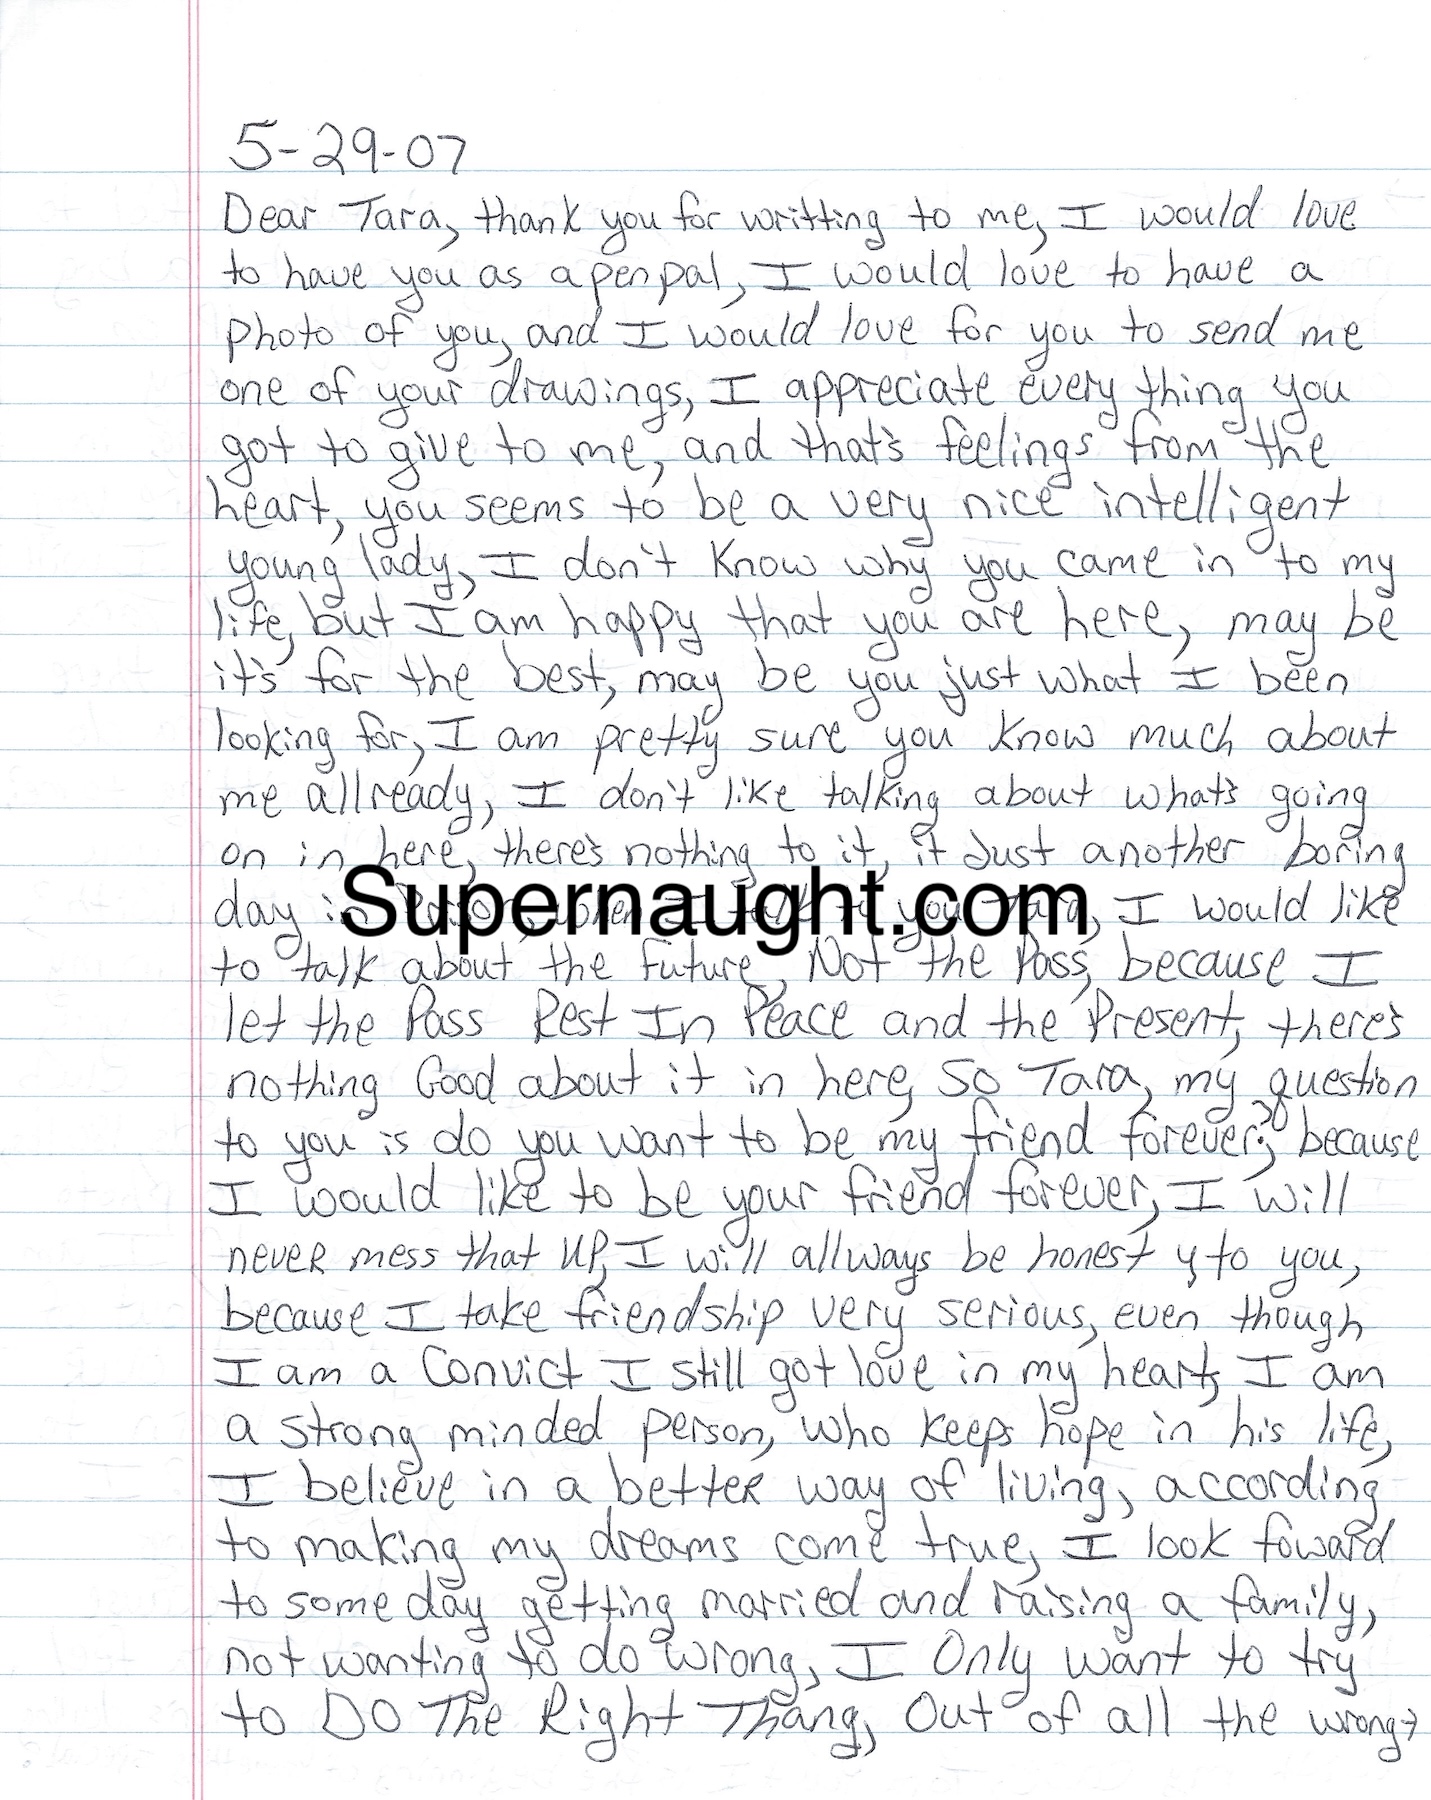 5-29-07
Dear Tara, thank you for writting to me, I would love
to have you as a penpal, I would love to have a
photo of you, and I would love for you to send me
one of your drawings, I appreciate every thing you
got to give to me, and that's feelings from the
heart, you seems to be a very nice intelligent
young lady, I don't know why you came in to my
life, but I am happy that you are here, may be
it's for the best, may be you just what I been
looking for, I am pretty sure you know much about
me allready, I don't like talking about what's going
on in here, there's nothing to it, it Just another boring
day in Prison, when I talk to you Tara, I would like
Supernaught.com
to talk about the future, Not the Pass, because I
let the Pass Rest In Peace and the Present, there's
nothing Good about it in here, So Tara, my question
to you is do you want to be my friend forever?, because
I would like to be your friend forever, I will
never mess that up, I will allways be honest to you,
because I take friendship very serious, even though
I am a Convict I still got love in my heart, I am
a strong minded person, who keeps hope in his life,
I believe in a better way of living, according
to making my dreams come true, I look foward
to some day getting married and raising a family,
not wanting to do wrong, I Only want to try
to DO The Right Thang, Out of all the wrong